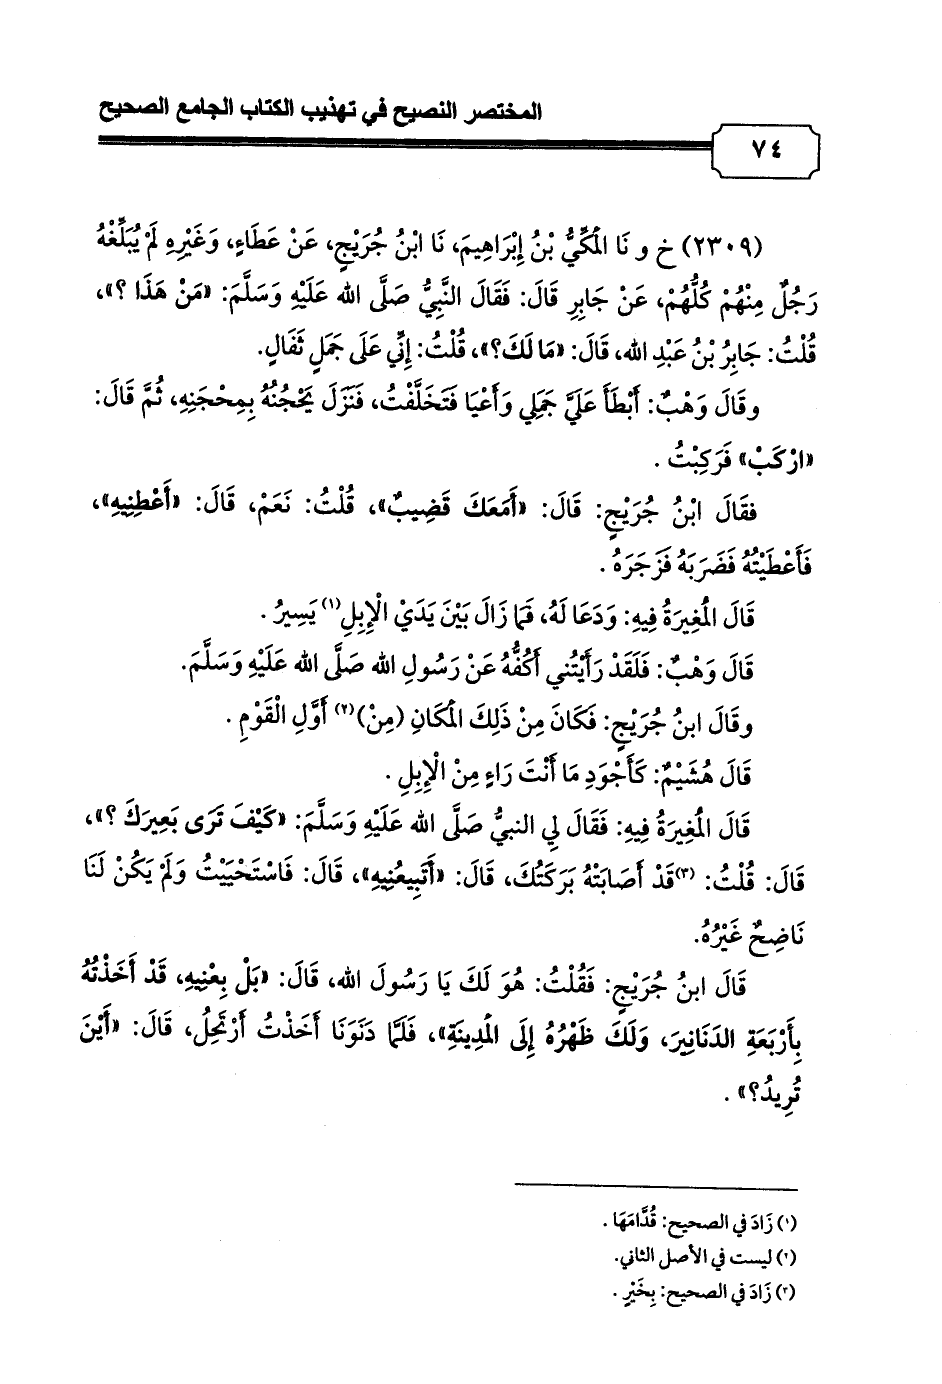 المختصر النصيح في تهذيب الكتاب الجامع الصحيح
٧٤
(٢٣٠٩) خ و نَا الْمَكِّيُّ بْنُ إِبْرَاهِيمَ، نَا ابْنُ جُرَيْجٍ، عَنْ عَطَاءٍ، وَغَيْرِهِ لَمْ يُبَلِّغْهُ
رَجُلٌ مِنْهُمْ كُلُّهُمْ، عَنْ جَابِرِ قَالَ: فَقَالَ النَّبِيُّ صَلَّى الله عَلَيْهِ وَسَلَّمَ: «مَنْ هَذَا ؟»،
قُلْتُ: جَابِرُ بْنُ عَبْدِ الله، قَالَ: «مَا لَكَ؟»، قُلْتُ: إِنِّي عَلَى جَمَلٍ ثَفَالٍ.
وقَالَ وَهْبٌ: أَبْطَأَ عَلَيَّ جَمَلِي وَأَعْيَا فَتَخَلَّفْتُ، فَنَزَلَ يَحْجُنُهُ بِمِحْجَنِهِ، ثُمَّ قَالَ:
«ارْكَبْ» فَرَكِبْتُ .
فقَالَ ابْنُ جُرَيْجٍ: قَالَ: «أَمَعَكَ قَضِيبٌ»، قُلْتُ: نَعَمْ، قَالَ: «أَعْطِنِيهِ»،
فَأَعْطَيْتُهُ فَضَرَبَهُ فَزَجَرَهُ .
قَالَ الْمُغِيرَةُ فِيهِ: وَدَعَا لَهُ، فَمَا زَالَ بَيْنَ يَدَيْ الْإِبِلِ(١) يَسِيرُ .
قَالَ وَهْبٌ: فَلَقَدْ رَأَيْتُنِي أَكُفُّهُ عَنْ رَسُولِ الله صَلَّى الله عَلَيْهِ وَسَلَّمَ.
وقَالَ ابنُ جُرَيْجٍ: فَكَانَ مِنْ ذَلِكَ الْمَكَانِ (مِنْ)(٢) أَوَّلِ الْقَوْمِ .
قَالَ هُشَيْمٌ: كَأَجْوَدِ مَا أَنْتَ رَاءٍ مِنْ الْإِبِلِ .
قَالَ الْمُغِيرَةُ فِيهِ: فَقَالَ لِي النبيُّ صَلَّى الله عَلَيْهِ وَسَلَّمَ: «كَيْفَ تَرَى بَعِيرَكَ ؟»،
قَالَ: قُلْتُ: (٣)قَدْ أَصَابَتْهُ بَرَكَتُكَ، قَالَ: «أَتَبِيعُنِيهِ»، قَالَ: فَاسْتَحْيَيْتُ وَلَمْ يَكُنْ لَنَا
نَاضِحٌ غَيْرُهُ.
قَالَ ابنُ جُرَيْجٍ: فَقُلْتُ: هُوَ لَكَ يَا رَسُولَ الله، قَالَ: «بَلْ بِعْنِيهِ، قَدْ أَخَذْتُهُ
بِأَرْبَعَةِ الدَنَانِيرَ، وَلَكَ ظَهْرُهُ إِلَى الْمَدِينَةِ»، فَلَمَّا دَنَوْنَا أَخَذْتُ أَرْتَحِلُ، قَالَ: «أَيْنَ
تُرِيدُ؟» .
(١) زَادَ في الصحيح: قُدَّامَهَا .
(٢) ليست في الأصل الثاني.
(٣) زَادَ في الصحيح: بِخَيْرٍ .